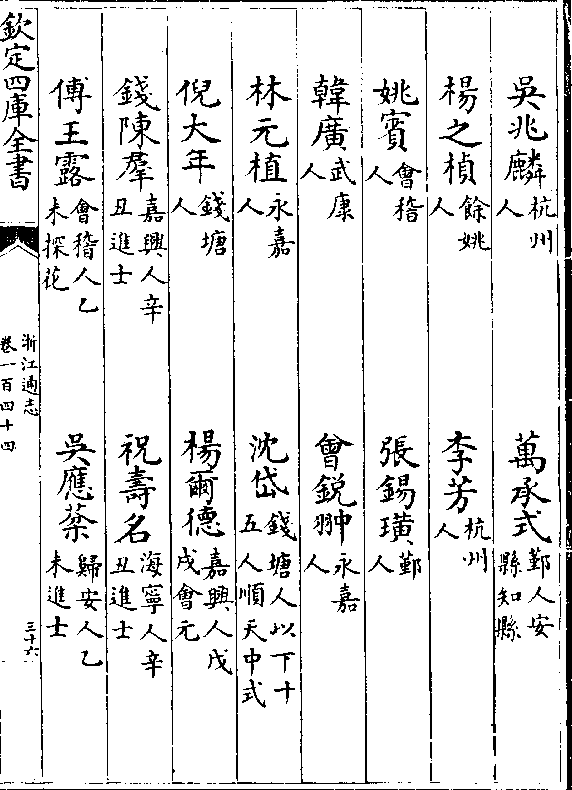 吳兆麟杭州人　萬承式鄞人安縣知縣
楊之楨餘姚人　李芳杭州人
姚賓會稽人　張錫璜鄞人
韓廣武康人　曾鋭翀永嘉人
林元植永嘉人　沈岱錢塘人以下十五人順天中式
倪大年錢塘人　楊爾德嘉興人戊戌會元
錢陳羣嘉興人辛丑進士　祝壽名海寧人辛丑進士
傅王露會稽人乙未探花　吳應棻歸安人乙未進士
欽定四庫全書
浙江通志
卷一百四十四
三十六